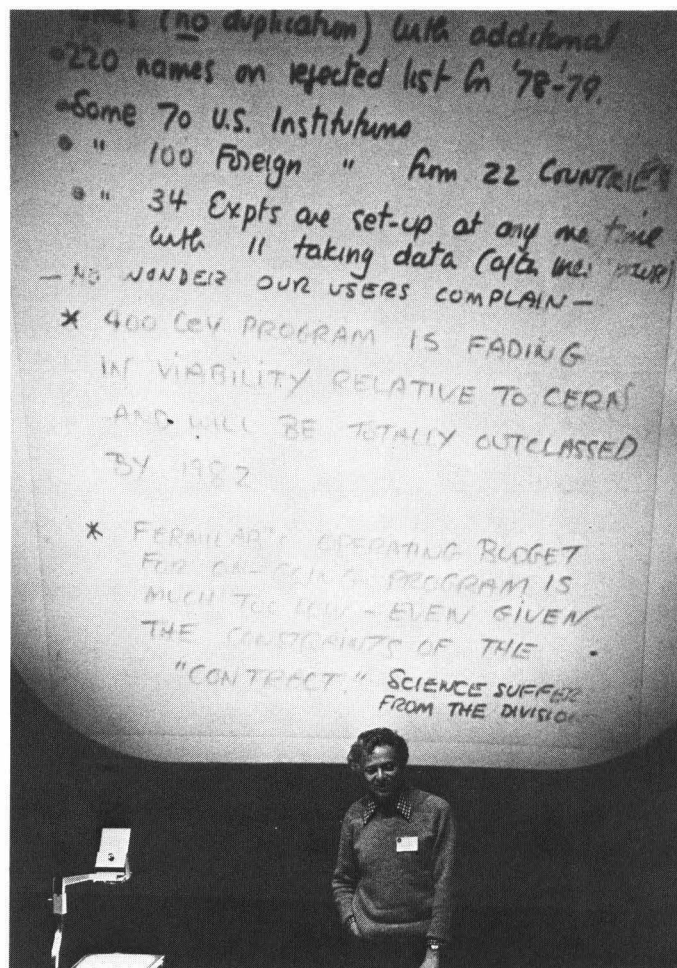 (no duplication) with additional
•220 names on rejected list in '78-'79.
•Some 70 U.S. Institutions
• " 100 Foreign " from 22 COUNTRIES
• " 34 Expts are set-up at any one time
with 11 taking data (after inc.
— NO WONDER OUR USERS COMPLAIN —
* 400 GeV PROGRAM IS FADING
IN VIABILITY RELATIVE TO CERN
AND WILL BE TOTALLY OUTCLASSED
BY 1982
* FERMILAB'S OPERATING BUDGET
FOR ON-GOING PROGRAM IS
MUCH TOO LOW - EVEN GIVEN
THE CONSTRAINTS OF THE
"CONTRACT." SCIENCE SUFFER
FROM THE DIVISION